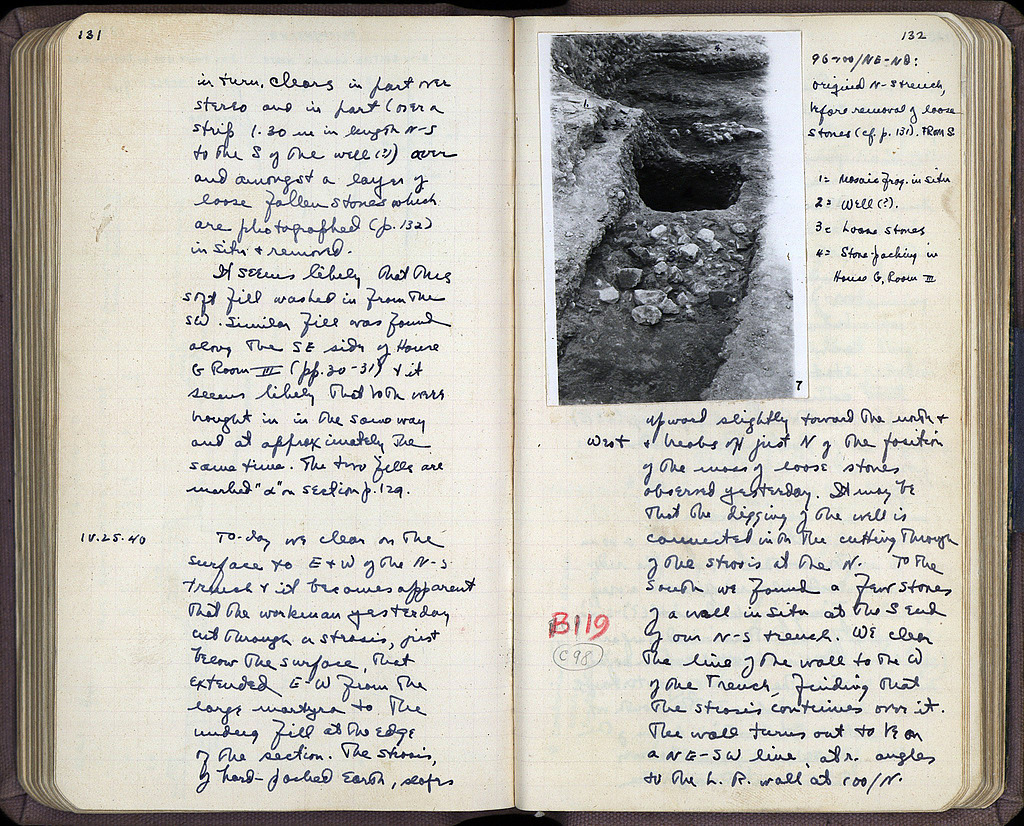 131
in turn, clears in part over
stereo and in part (over a
strip 1.30 m in length N-S
to the S of the well (?)) over
and amongst a layer of
loose fallen stones which
are photographed (p. 132)
in situ & removed.
It seems likely that this
soft fill washed in from the
SW. Similar fill was found
along the SE side of House
G Room III (pp. 30-31) & it
seems likely that both were
brought in in the same way
and at approximately the
same time. The two fills are
marked "α" on section p. 129.
IV.25.40
To-day we clear on the
surface to E & W of the N-S
trench & it becomes apparent
that the workman yesterday
cut through a strosis, just
below the surface, that
extended E-W from the
large martyra to the
undug fill at the edge
of the section. The strosis,
of hard-packed earth, slopes
132
96-100/NE-NΘ:
original N-S trench,
before removal of loose
stones (cf. p. 131). From S
1= Mosaic frag. in situ
2= Well (?).
3= Loose stones
4= Stone-packing in
House G, Room III
7
upward slightly toward the north &
west & breaks off just N of the position
of the mass of loose stones
observed yesterday. It may be
that the digging of the well is
connected with the cutting through
of the strosis at the N. To the
south we found a few stones
of a wall in situ at the S end
of our N-S trench. We clear
B119
C98
the line of the wall to the W
of the trench, finding that
the strosis continues over it.
The wall turns out to be on
a NE-SW line, at r. angles
to the L. R. wall at 100/N.